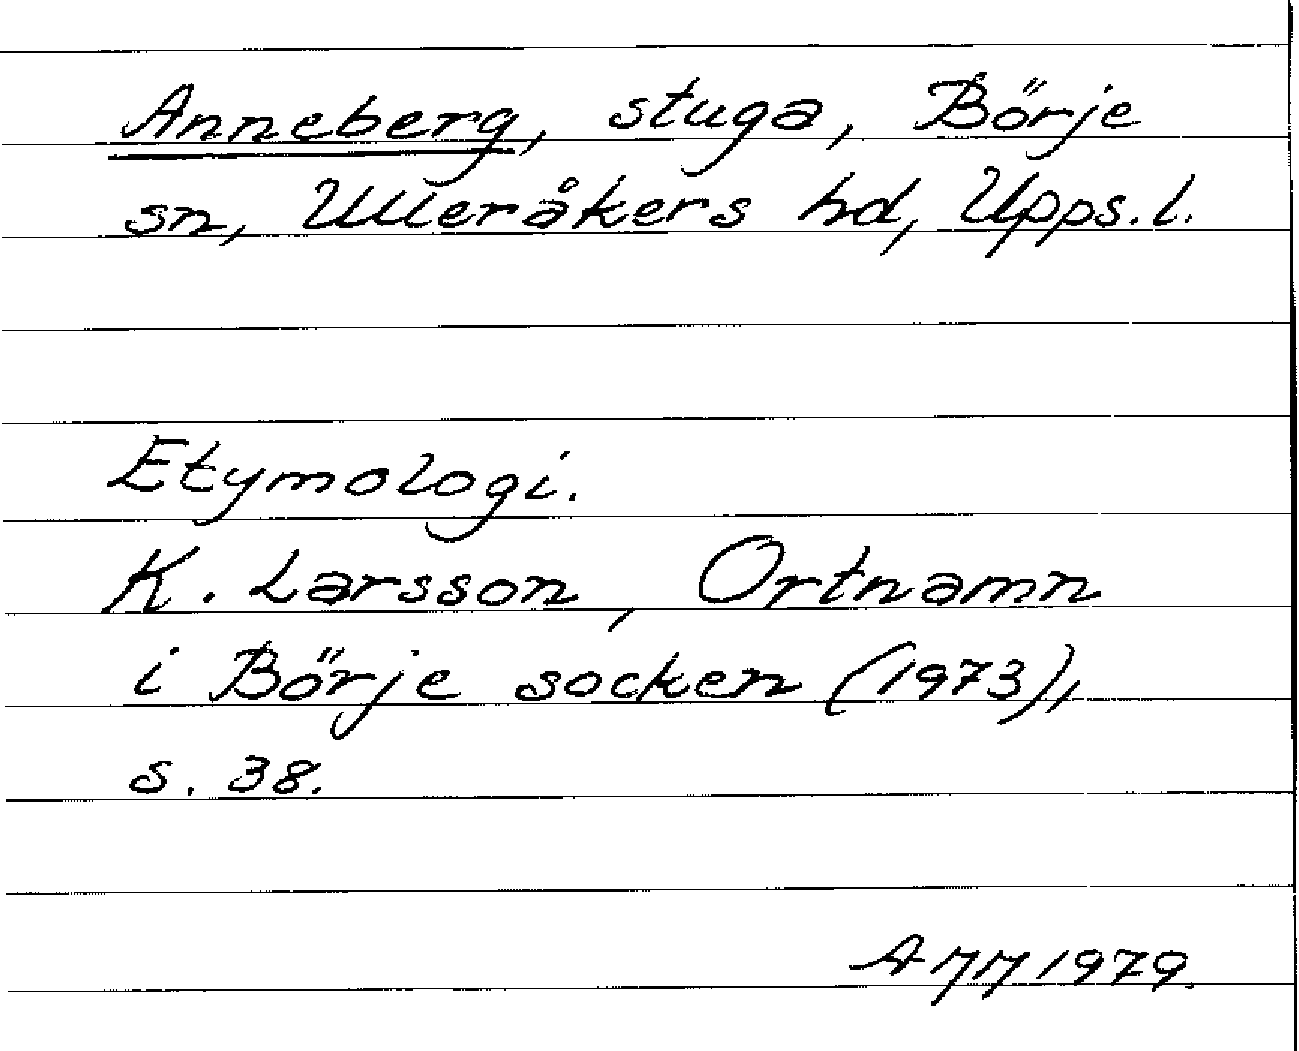 Anneberg, stuga, Börje
sn, Ulleråkers hd, Upps. l.
Etymologi.
K. Larsson, Ortnamn
i Börje socken (1973),
s. 38.
1979.